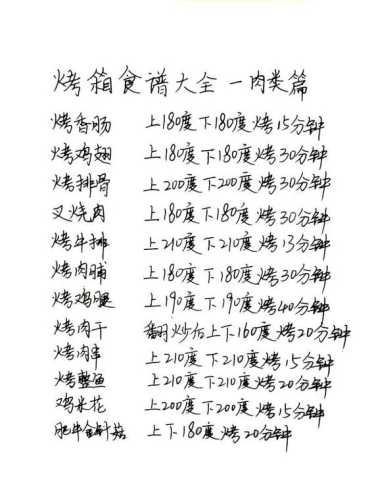 烤箱食谱大全 一肉类篇
烤香肠 上180度下180度烤15分钟
烤鸡翅 上180度下180度烤30分钟
烤排骨 上200度下200度烤30分钟
叉烧肉 上180度下180度烤30分钟
烤牛排 上210度下210度烤13分钟
烤肉脯 上180度下180度烤30分钟
烤鸡腿 上190度下190度烤40分钟
烤肉干 翻炒后上下160度烤20分钟
烤肉串 上210度下210度烤15分钟
烤整鱼 上210度下210度烤20分钟
鸡米花 上200度下200度烤15分钟
肥牛金针菇 上下180度烤20分钟